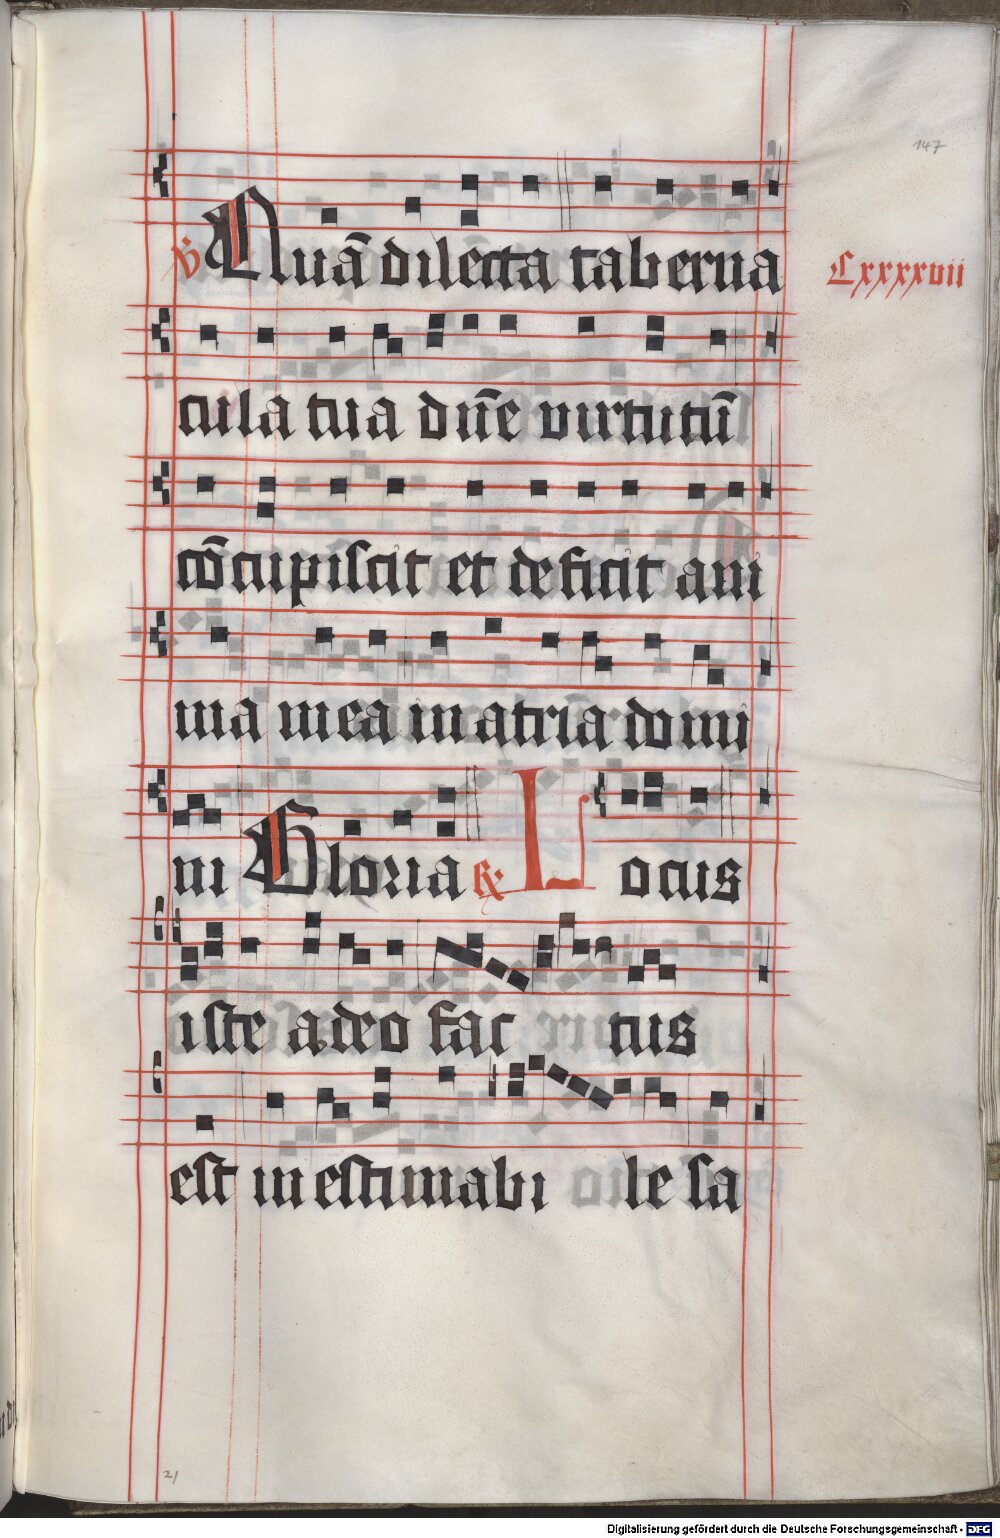 147
℣ Quā dilecta taberna
Cxxxxvii
cula tua dn̄e virtutū
cōcupiscit et deficit ani
ma mea in atria domi
ni Gloria ℟ Locus
iste a deo fac tus
est inestimabi le sa
21
Digitalisierung gefördert durch die Deutsche Forschungsgemeinschaft - DFG